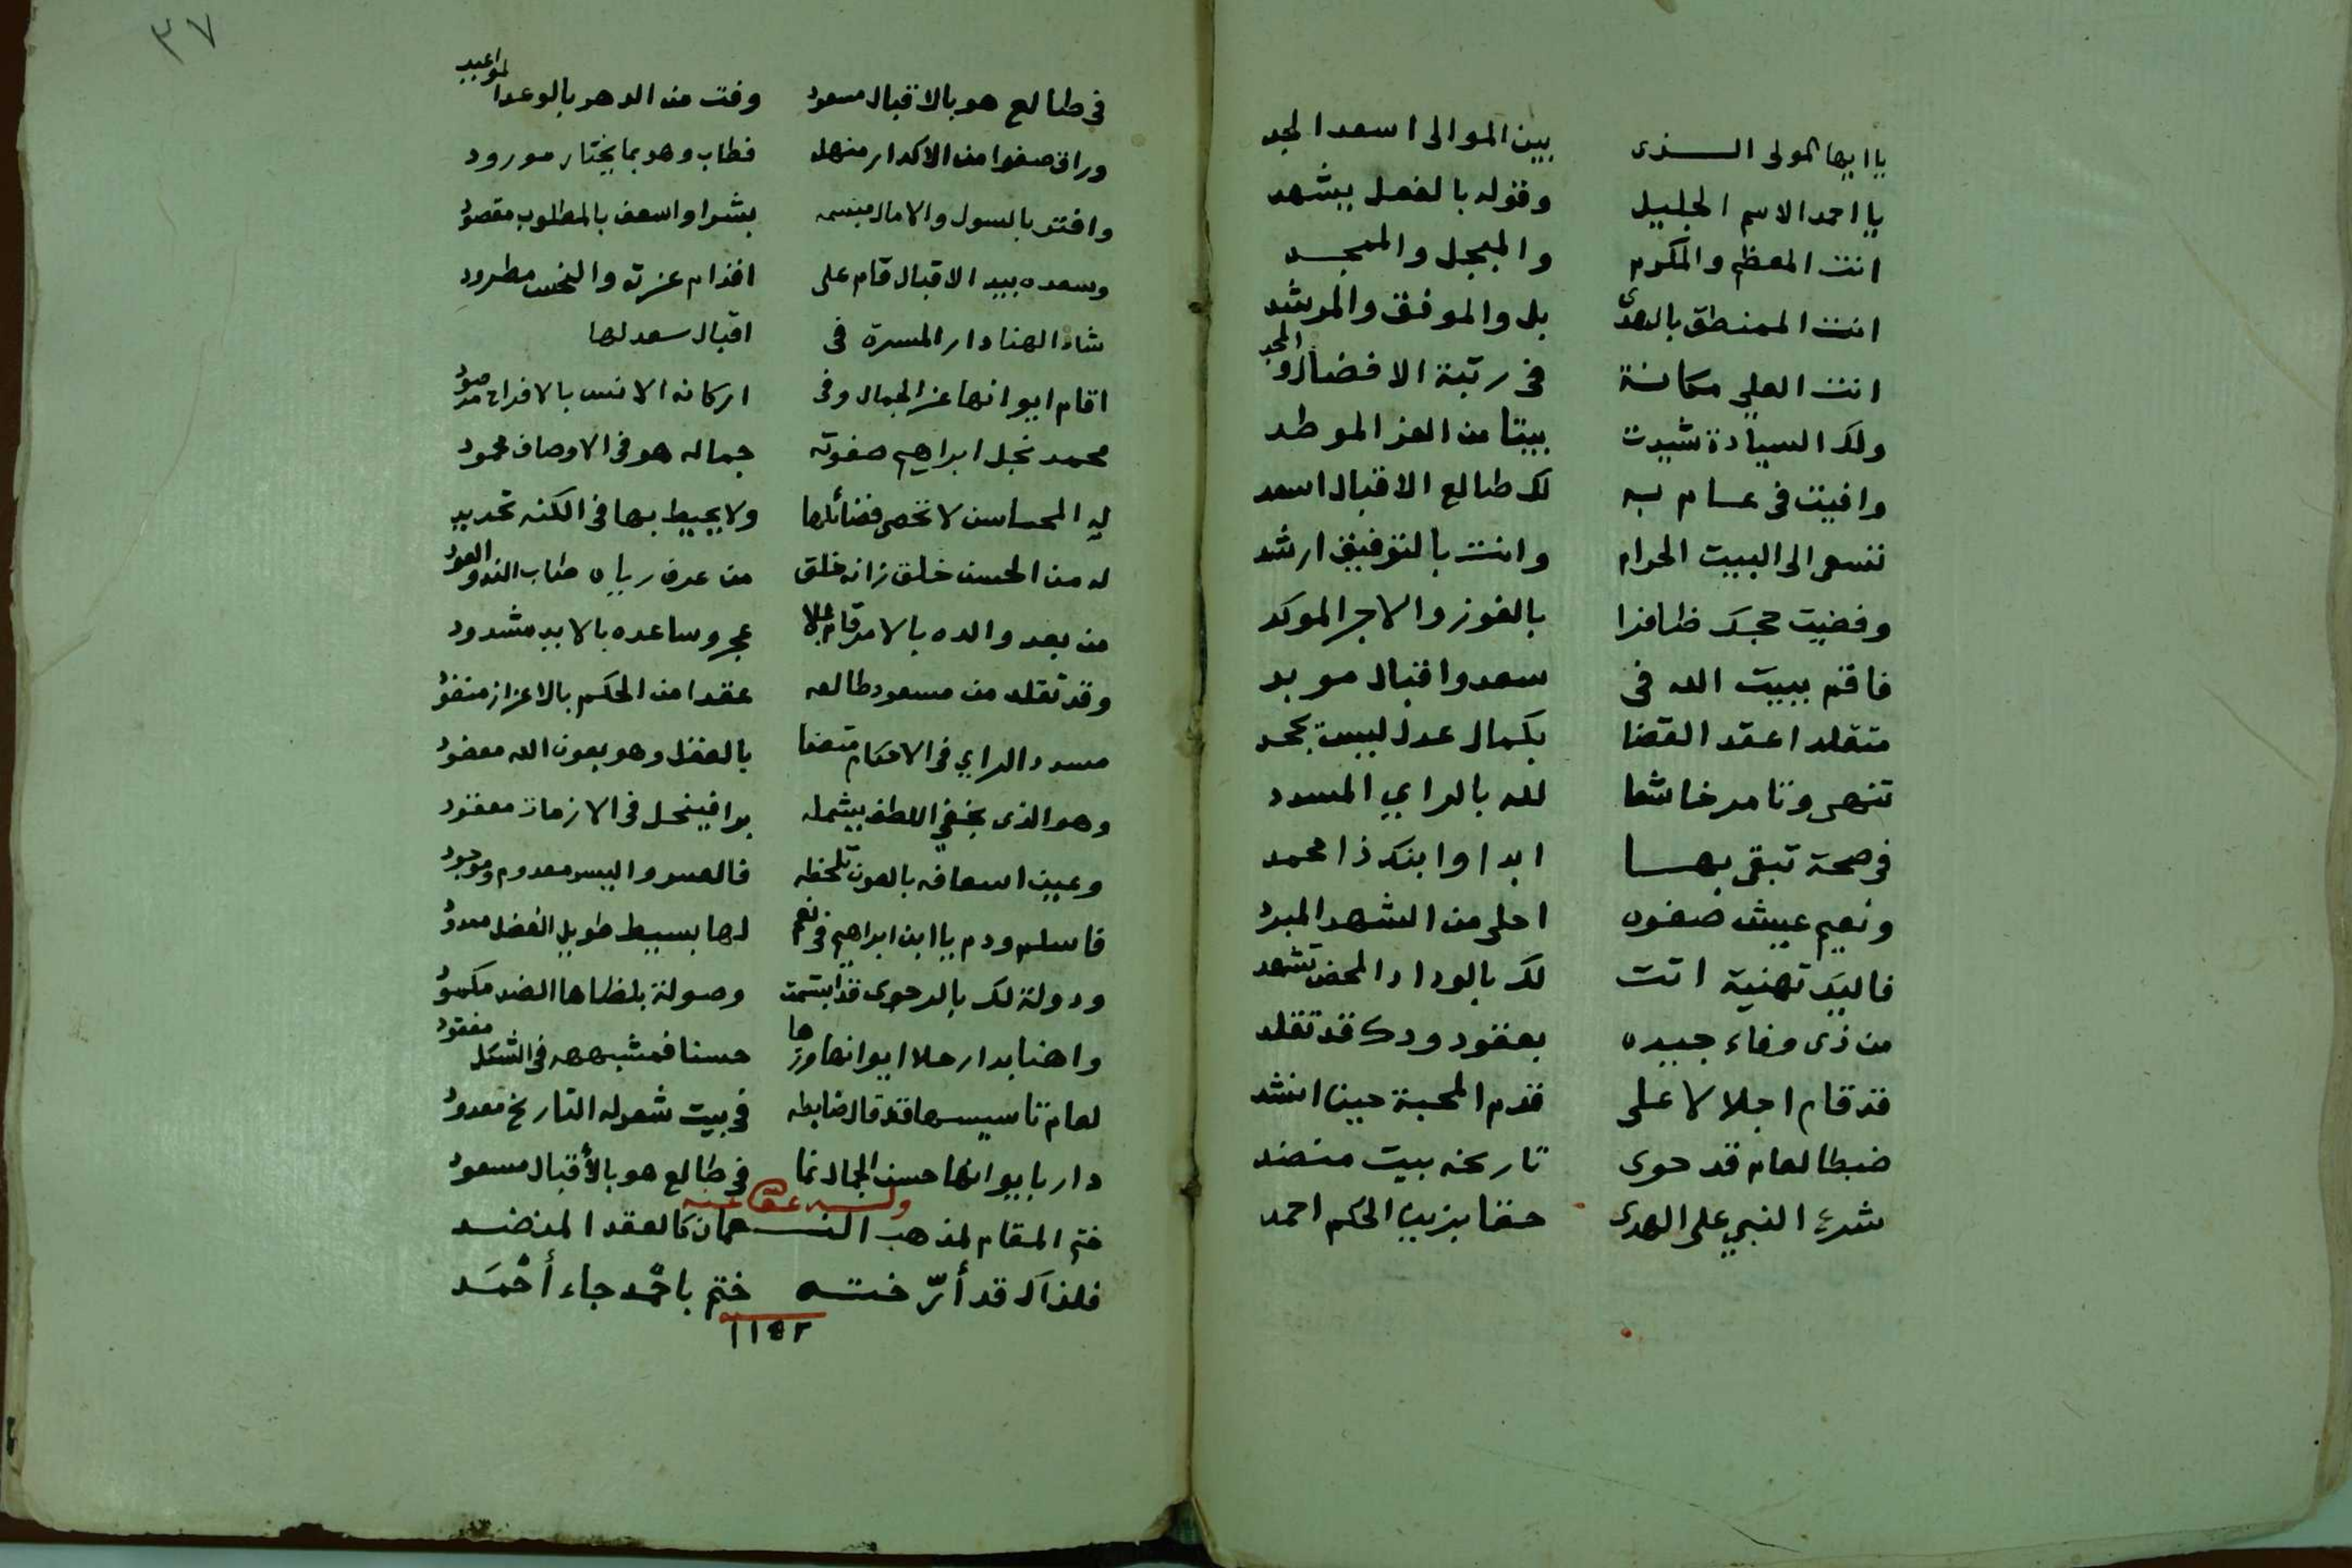 يا ايها المولى الذى بين الموالى اسعد الجد
يا احمد الاسم الجليل وقوله بالفعل يشهد
انت المعظم والمكرم والمبجل والممجد
انت الممنطق بالهدى بل والموفق والمرشد
انت العلى مكانة فى رتبة الافضال والمجد
ولك السيادة شيدت بيتا من العز الموطد
وافيت فى عام به لك طالع الاقبال اسعد
تسعى الى البيت الحرام وانت بالتوفيق ارشد
وقضيت حجك ظافرا بالفوز والاجر الموكد
فاقم ببيت الله فى سعد واقبال موبد
متقلدا عقد القضا بكمال عدل ليس يجحد
تنهى وتامر خاشعا لله بالراي المسدد
فى صحة تبقى بها ابدا وابنك ذا محمد
ونعيم عيش صفوه احلى من الشهد المبرد
فاليك تهنية اتت لك بالوداد المحض تشهد
من ذى وفاء جيده بعقود ودك قد تقلد
قد قام اجلالا على قدم المحبة حين انشد
ضبطا لعام قد حوى تاريخه بيت منضد
شرع النبي على الهدى حقا يزين الحكم احمد
٣٧
فى طالع هو بالاقبال مسعود وفت من الدهر بالوعد المواعيد
وراق صفوا من الاكدار منهل فطاب وهو بما يختار مورود
وافتر بالسول والامال مبسمه بشرا واسعف بالمطلوب مقصود
وسعده بيد الاقبال قام على اقدام عزته والنحس مطرود
شاد الهنا دار المسرة فى اقبال سعد لها
اقام ايوانها عز الجمال وفى اركانه الانس بالافراح مرصود
محمد نجل ابراهيم صفوته جماله هو فى الاوصاف محمود
له المحاسن لا تحصى فضائلها ولا يحيط بها فى الكنه تحديد
له من الحسن خلق زانه خلق من عرف رياه طاب الند والعود
من بعد والده بالامر قام علا عجر وساعده بالايد مشدود
وقد تقلد من مسعود طالعه عقدا من الحكم بالاعزاز منضود
مسدد الراي فى الاحكام بالعقل وهو بعون الله معضود
وهو الذى بخفي اللطف يشمله معقود
وعين اسعافه بالعون تلحظه فالعسر واليسر معدوم وموجود
فاسلم ودم يا ابن ابراهيم فى نعم لها بسيط طويل الفضل ممدود
ودولة لك بالرجوى قد ابتسمت وصولة بلظاها الضد مكمود
واهنا بدار حلا ايوانها وزها حسنا فمشبهه فى الشكل مفقود
لعام تاسيسها قد قال ضابطه فى بيت شعر له التاريخ معدود
دار بايوانها حسن الجمال نما في طالع هو بالأقبال مسعود
وله عفا عنه
ختم المقام لمذهب النعمان كالعقد المنضد
فلذاك قد أرّخته ختم باحْمد جاء أحْمَد
١١٤٢